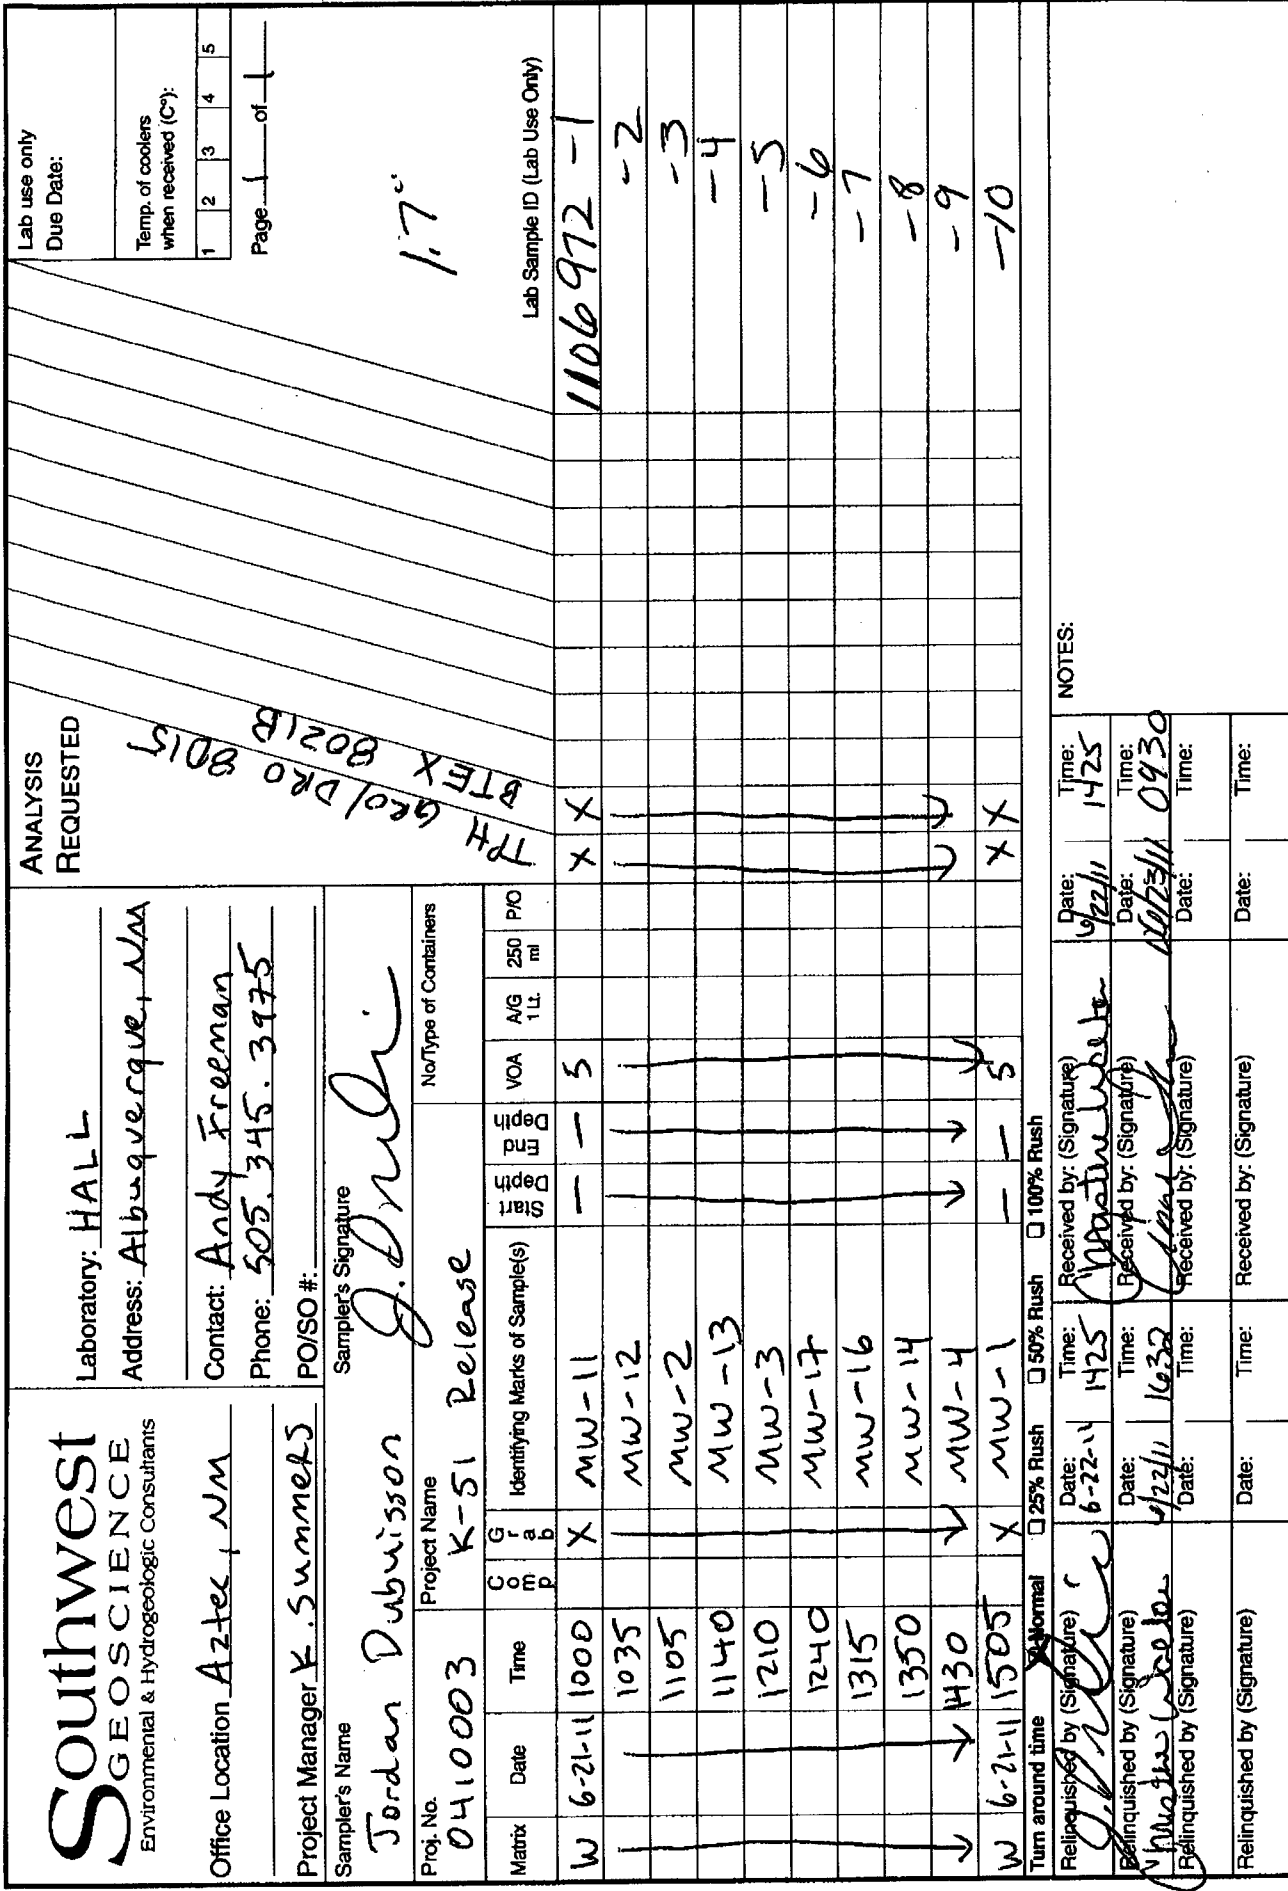 Southwest
GEOSCIENCE
Environmental & Hydrogeologic Consultants
Office Location Aztec, NM
Project Manager K. Summers
Laboratory: HALL
Address: Albuquerque, NM
Contact: Andy Freeman
Phone: 505.345.3975
PO/SO #:
ANALYSIS
REQUESTED
TPH GRO/DRO 8015
BTEX 8021B
Lab use only
Due Date:
Temp. of coolers
when received (C°):
1 2 3 4 5
Page 1 of 1
1.7°
Sampler's Name
Jordan Dubuisson
Sampler's Signature
Proj. No.
0410003
Project Name
K-51 Release
No/Type of Containers
Matrix Date Time Comp Grab Identifying Marks of Sample(s) Start Depth End Depth VOA A/G 1 Lt. 250 ml P/O Lab Sample ID (Lab Use Only)
W 6-21-11 1000 X MW-11 — — 5 X X 1106972 -1
1035 MW-12 -2
1105 MW-2 -3
1140 MW-13 -4
1210 MW-3 -5
1240 MW-17 -6
1315 MW-16 -7
1350 MW-14 -8
1430 MW-4 -9
W 6-21-11 1505 X MW-1 — — 5 X X -10
Turn around time X Normal 25% Rush 50% Rush 100% Rush
Relinquished by (Signature) Date: 6-22-11 Time: 1425 Received by: (Signature) Date: 6/22/11 Time: 1425 NOTES:
Relinquished by (Signature) Date: 6/22/11 Time: 1632 Received by: (Signature) Date: 6/23/11 Time: 0930
Relinquished by (Signature) Date: Time: Received by: (Signature) Date: Time:
Relinquished by (Signature) Date: Time: Received by: (Signature) Date: Time: